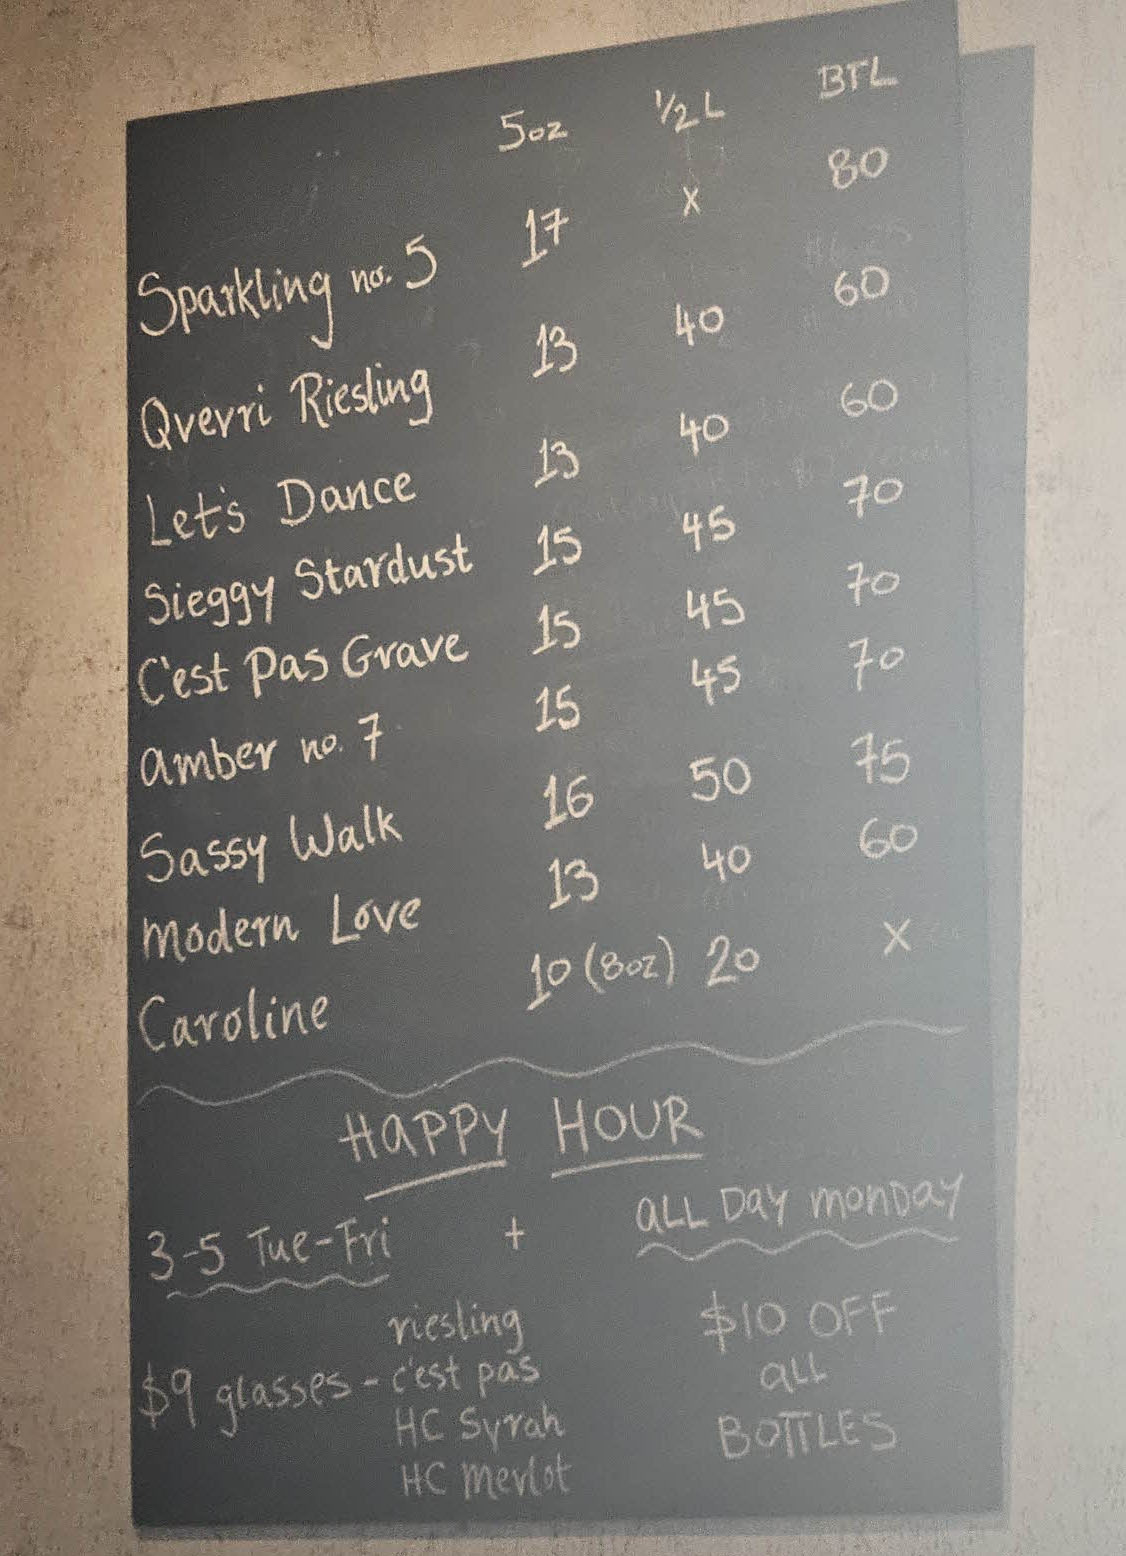 5oz ½ L BTL
Sparkling no. 5 17 x 80
Qvevri Riesling 13 40 60
Let's Dance 13 40 60
Sieggy Stardust 15 45 70
C'est Pas Grave 15 45 70
Amber no. 7 15 45 70
Sassy Walk 16 50 75
Modern Love 13 40 60
Caroline 10 (8oz) 20 X
HAPPY HOUR
3-5 Tue-Fri + ALL DAY MONDAY
$9 glasses - riesling
c'est pas
HC Syrah
HC Merlot
$10 OFF
ALL
BOTTLES